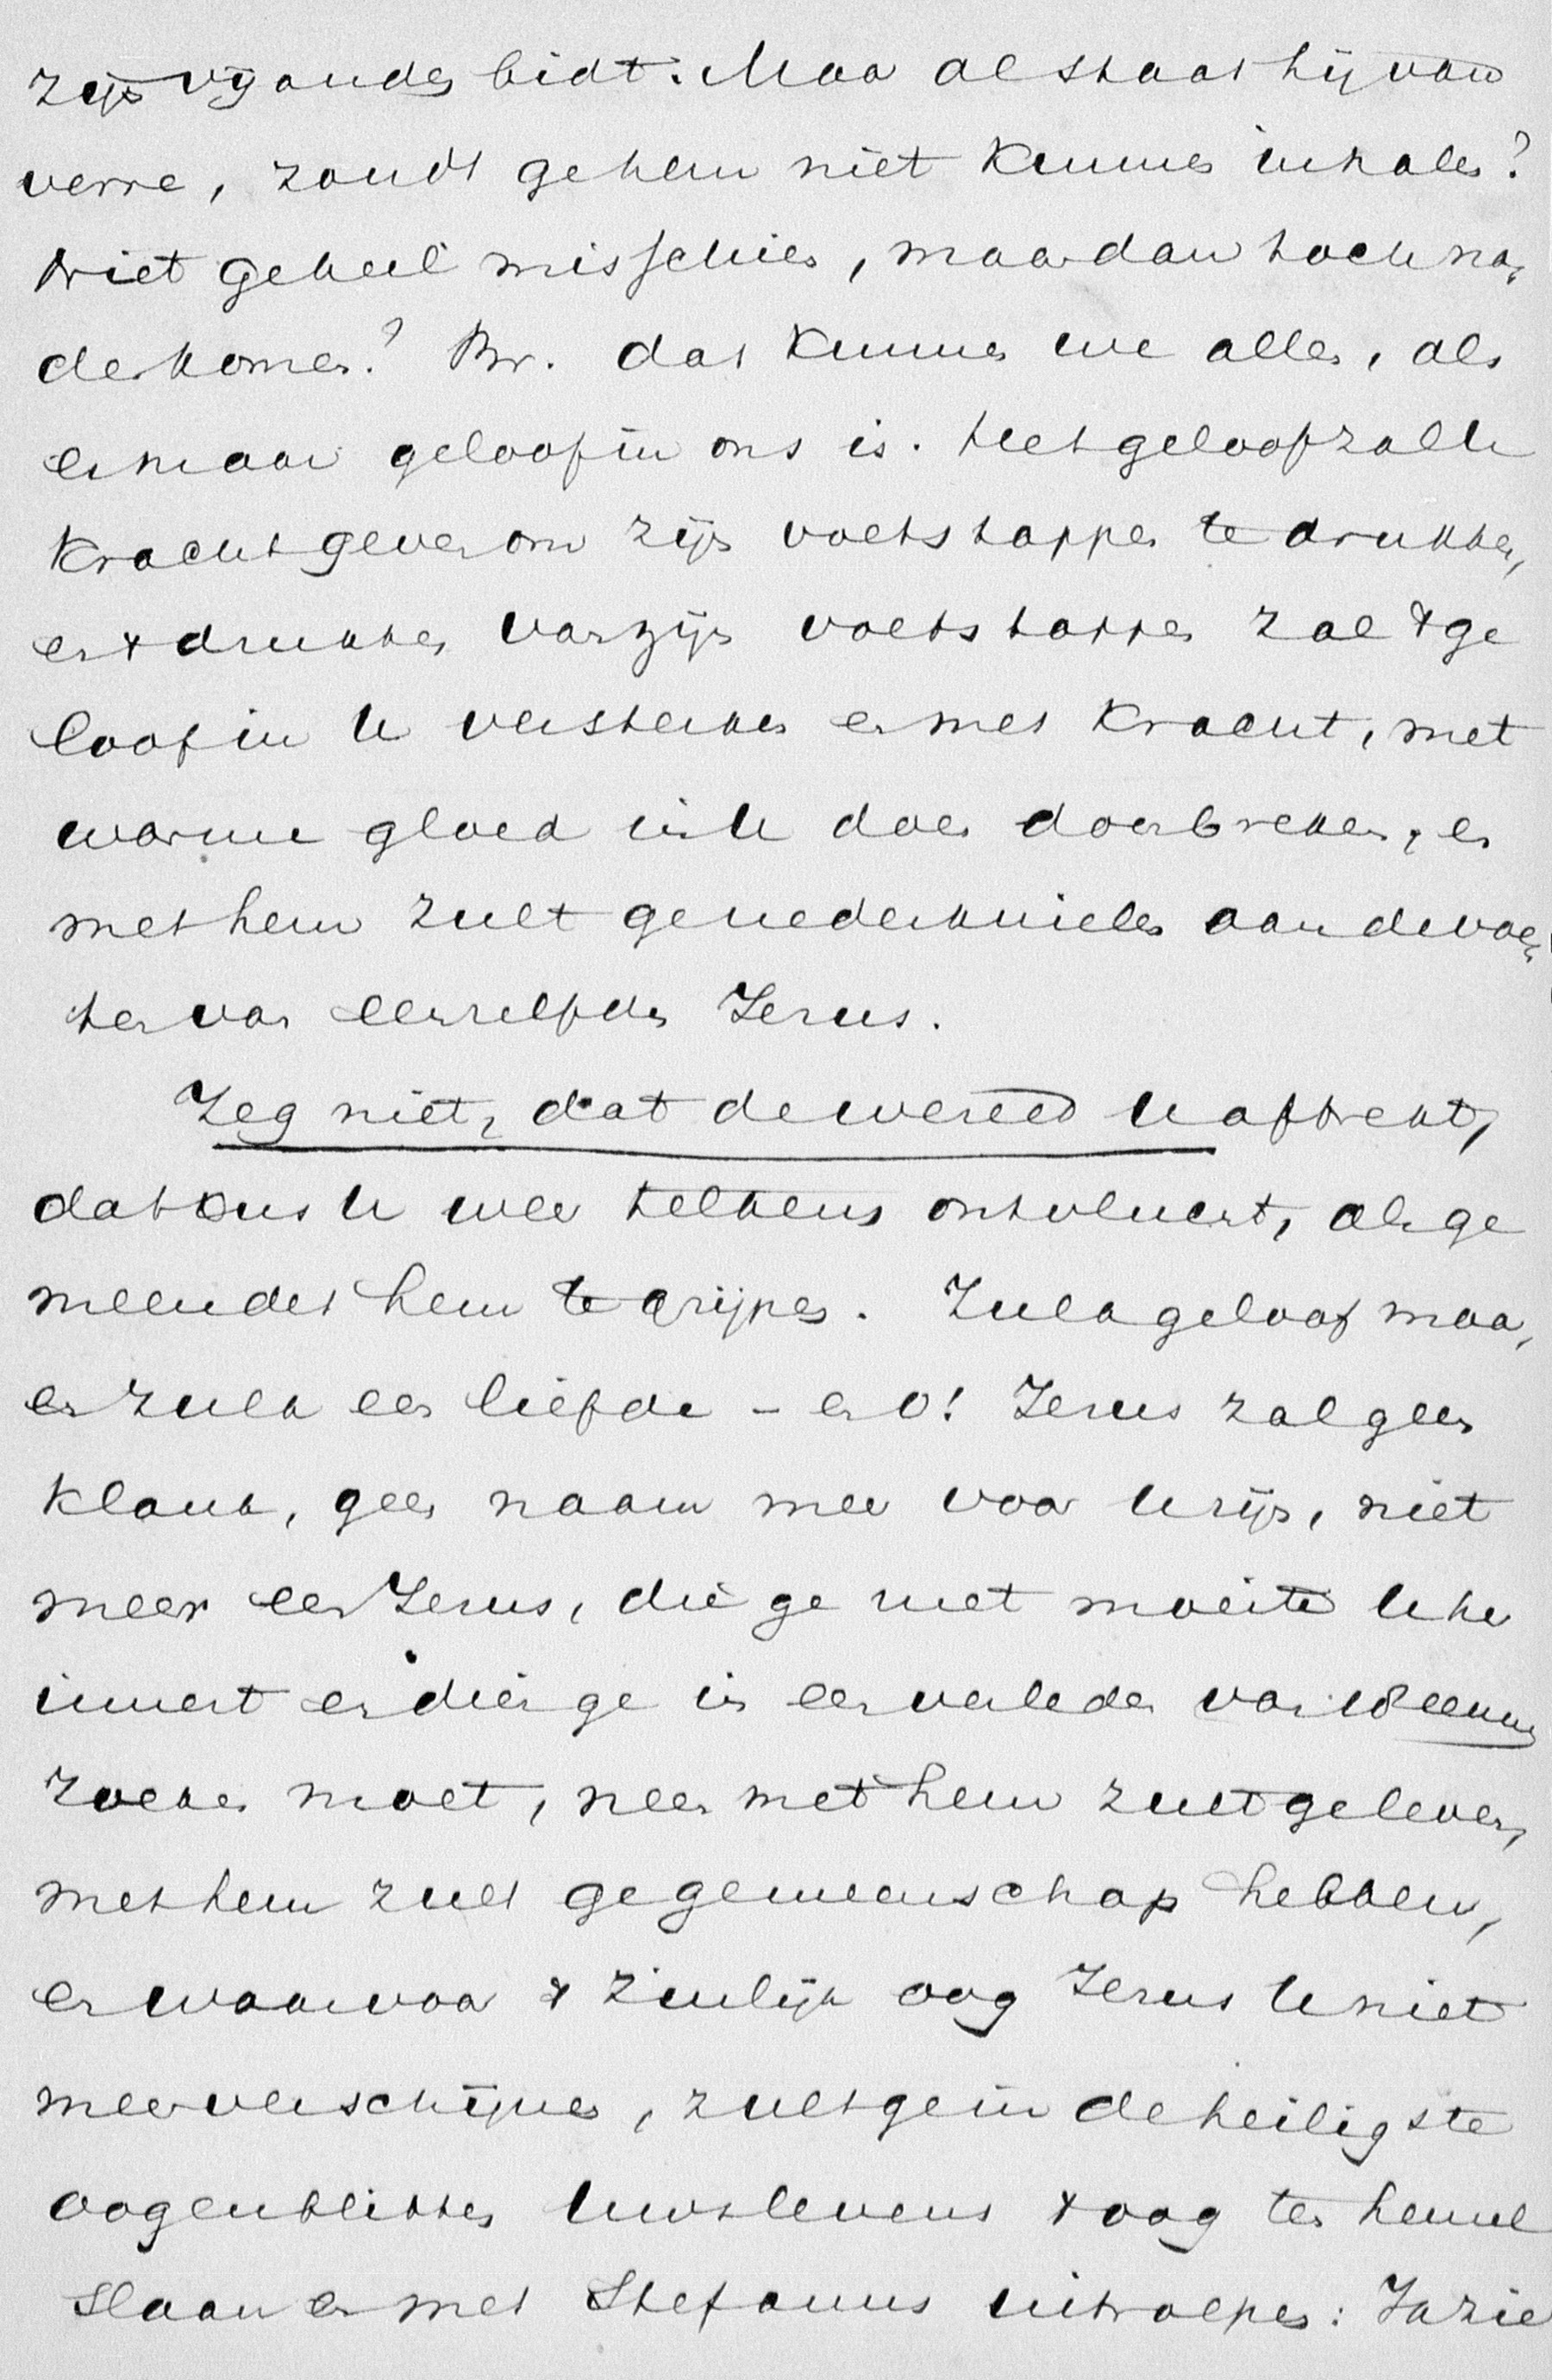 zijn vijanden bidt. Maar al staat hij van
verre, zoudt ge hem niet kunnen inhalen?
Niet geheel misschien, maar dan toch na-
derkomen? Br. dat kunnen we allen, als
er maar geloof in ons is. Het geloof zal U
kracht geven om zijn voetstappen te drukken,
en + drukken van zijn voetstappen zal + ge
loof in U versterken en met kracht, met
warme gloed in U doen doorbreken, en
met hem zult ge nederknielen aan de voe-
ten van eenzelfden Jezus.
Zeg niet, dat de wereld U aftrekt,
dat Jezus U weer telkens ontvlucht, als ge
meendet hem te grijpen. Zulk geloof maar,
en zulk een liefde - en o! Jezus zal geen
klank, geen naam meer voor U zijn, niet
meer een Jezus, die ge met moeite U her
innert en dien ge in een verleden van 18 eeuwen
zoeken moet, neen met hem zult ge leven,
met hem zult ge gemeenschap hebben,
en waar voor + zinlijk oog Jezus U niet
meer verschijnen, zult ge in de heiligste
oogenblikken Uws levens + oog ten hemel
slaan en met Stefanus uitroepen: Ik zie